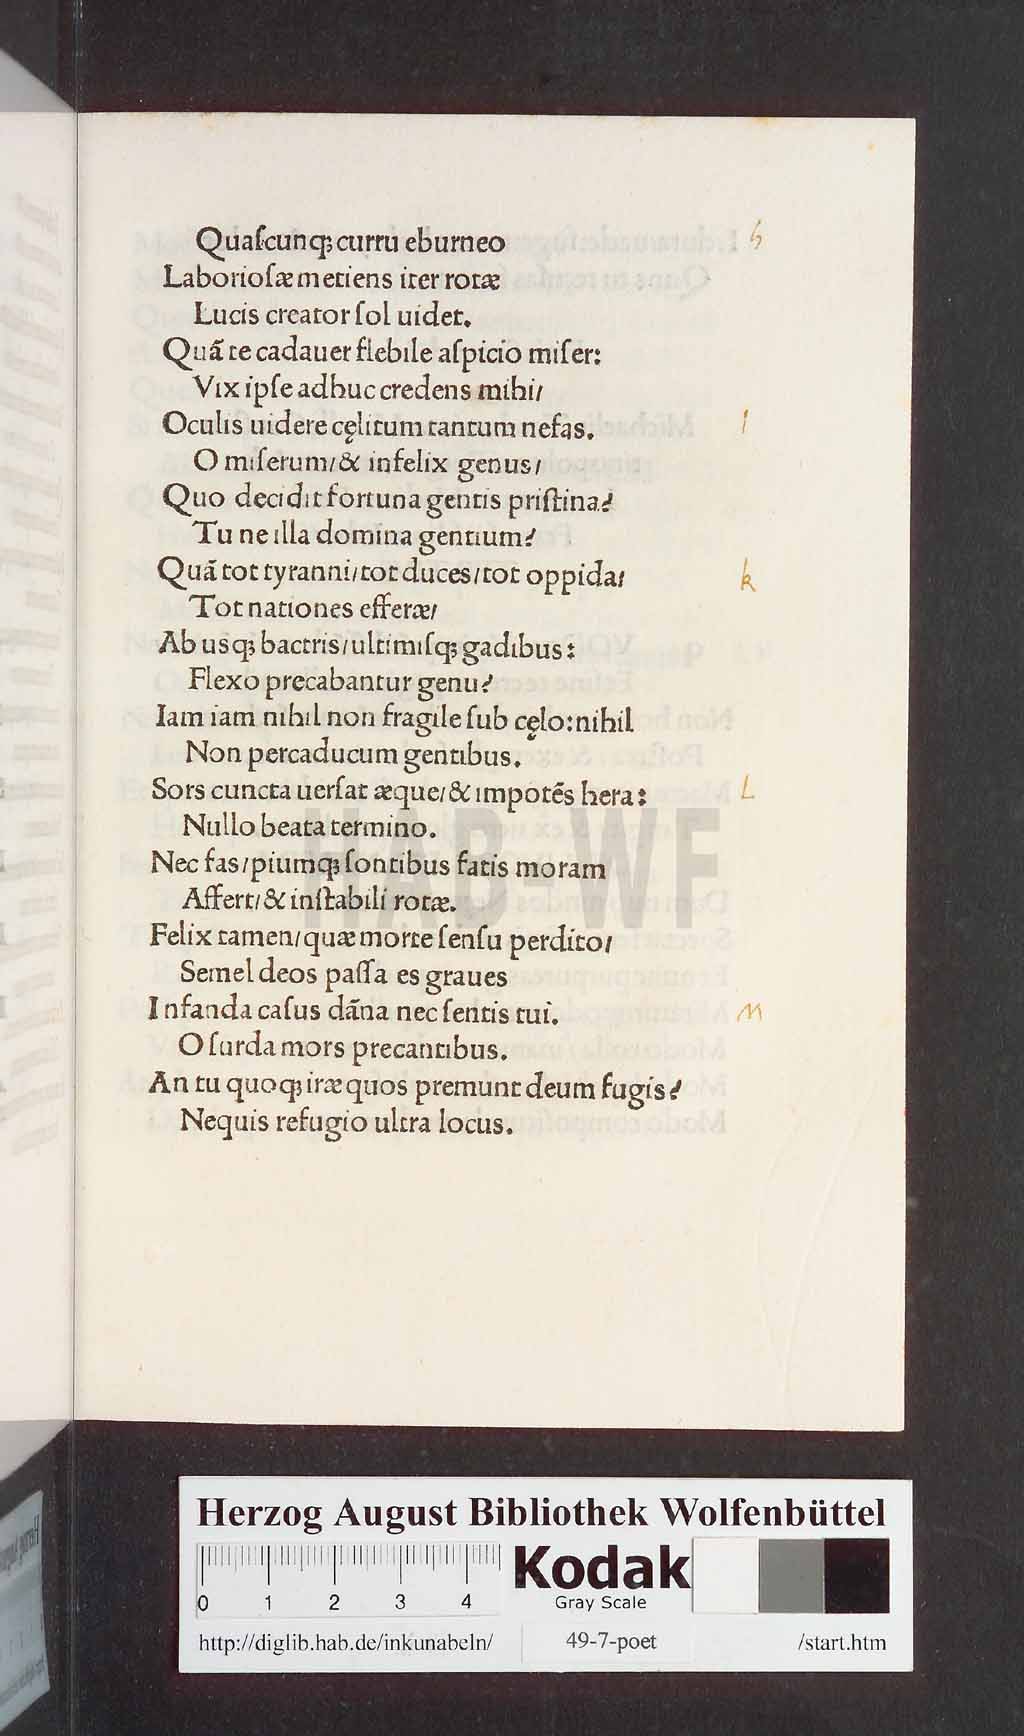 Quaſcunqꝫ curru eburneo
Laborioſæ metiens iter rotæ
Lucis creator ſol uidet.
Quã te cadauer flebile aſpicio miſer:
Vix ipſe adhuc credens mihi/
Oculis uidere cęlitum tantum nefas.
O miſerum/& infelix genus/
Quo decidit fortuna gentis priſtina?
Tu ne illa domina gentium?
Quã tot tyranni/tot duces/tot oppida/
Tot nationes efferæ/
Ab usqꝫ bactris/ultimiſqꝫ gadibus:
Flexo precabantur genu?
Iam iam nihil non fragile ſub cęlo:nihil
Non percaducum gentibus.
Sors cuncta uerſat æque/& impotẽs hera:
Nullo beata termino.
Nec fas/piumqꝫ ſontibus fatis moram
Affert/& inſtabili rotæ.
Felix tamen/quæ morte ſenſu perdito/
Semel deos paſſa es graues
Infanda caſus dãna nec ſentis tui.
O ſurda mors precantibus.
An tu quoqꝫ iræ quos premunt deum fugis?
Nequis refugio ultra locus.
h
I
k
L
M
HAB-WF
Herzog August Bibliothek Wolfenbüttel
0 1 2 3 4
Kodak
Gray Scale
http://diglib.hab.de/inkunabeln/ 49-7-poet /start.htm